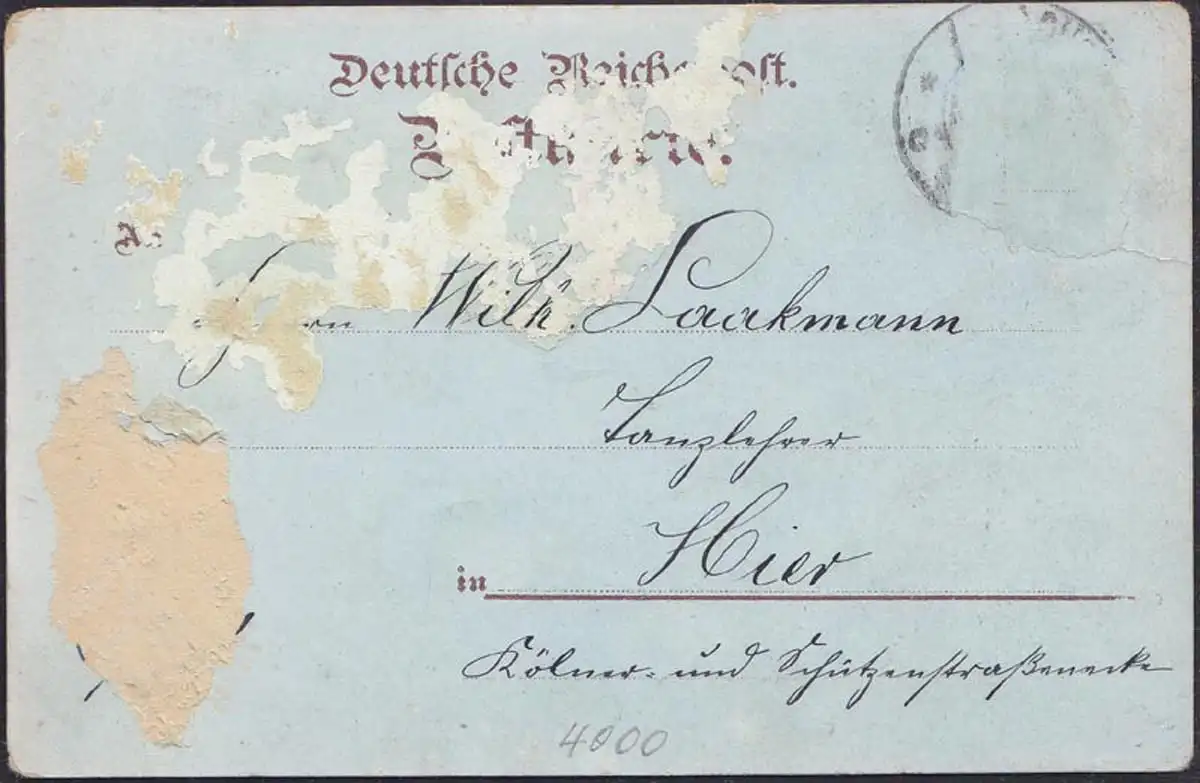 Deutsche Reichspost.
Postkarte.
An
Herrn Wilh. Laakmann
Tanzlehrer
in Hier
Kölner- und Schützenstraßenecke
4000